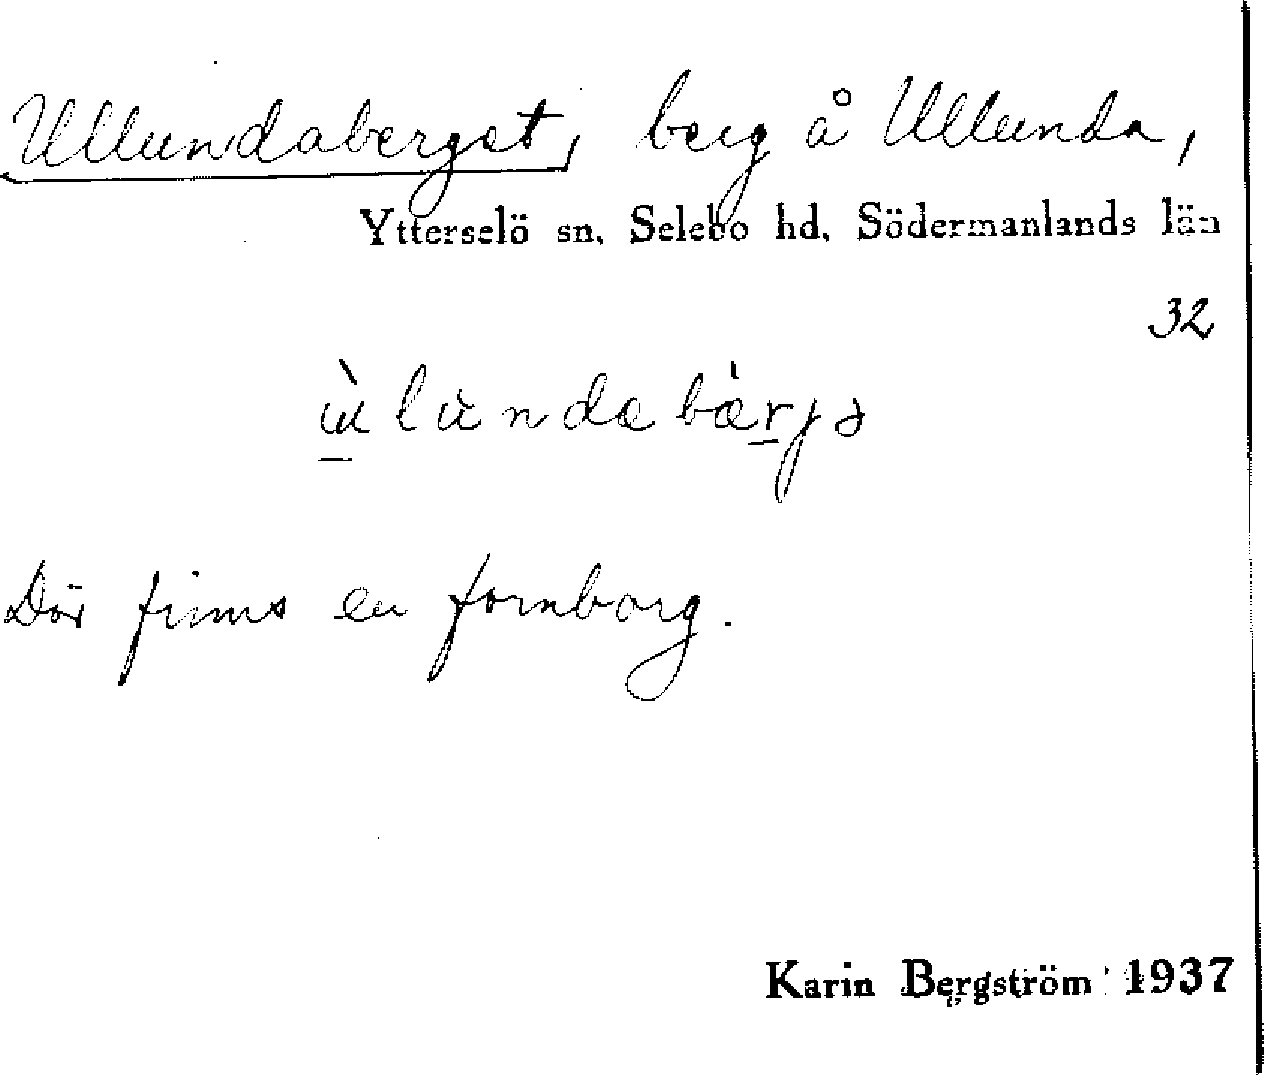 Ullundaberget, berg å Ullunda,
Ytterselö sn, Selebo hd, Södermanlands län
32
Där finns en fornborg.
Karin Bergström 1937